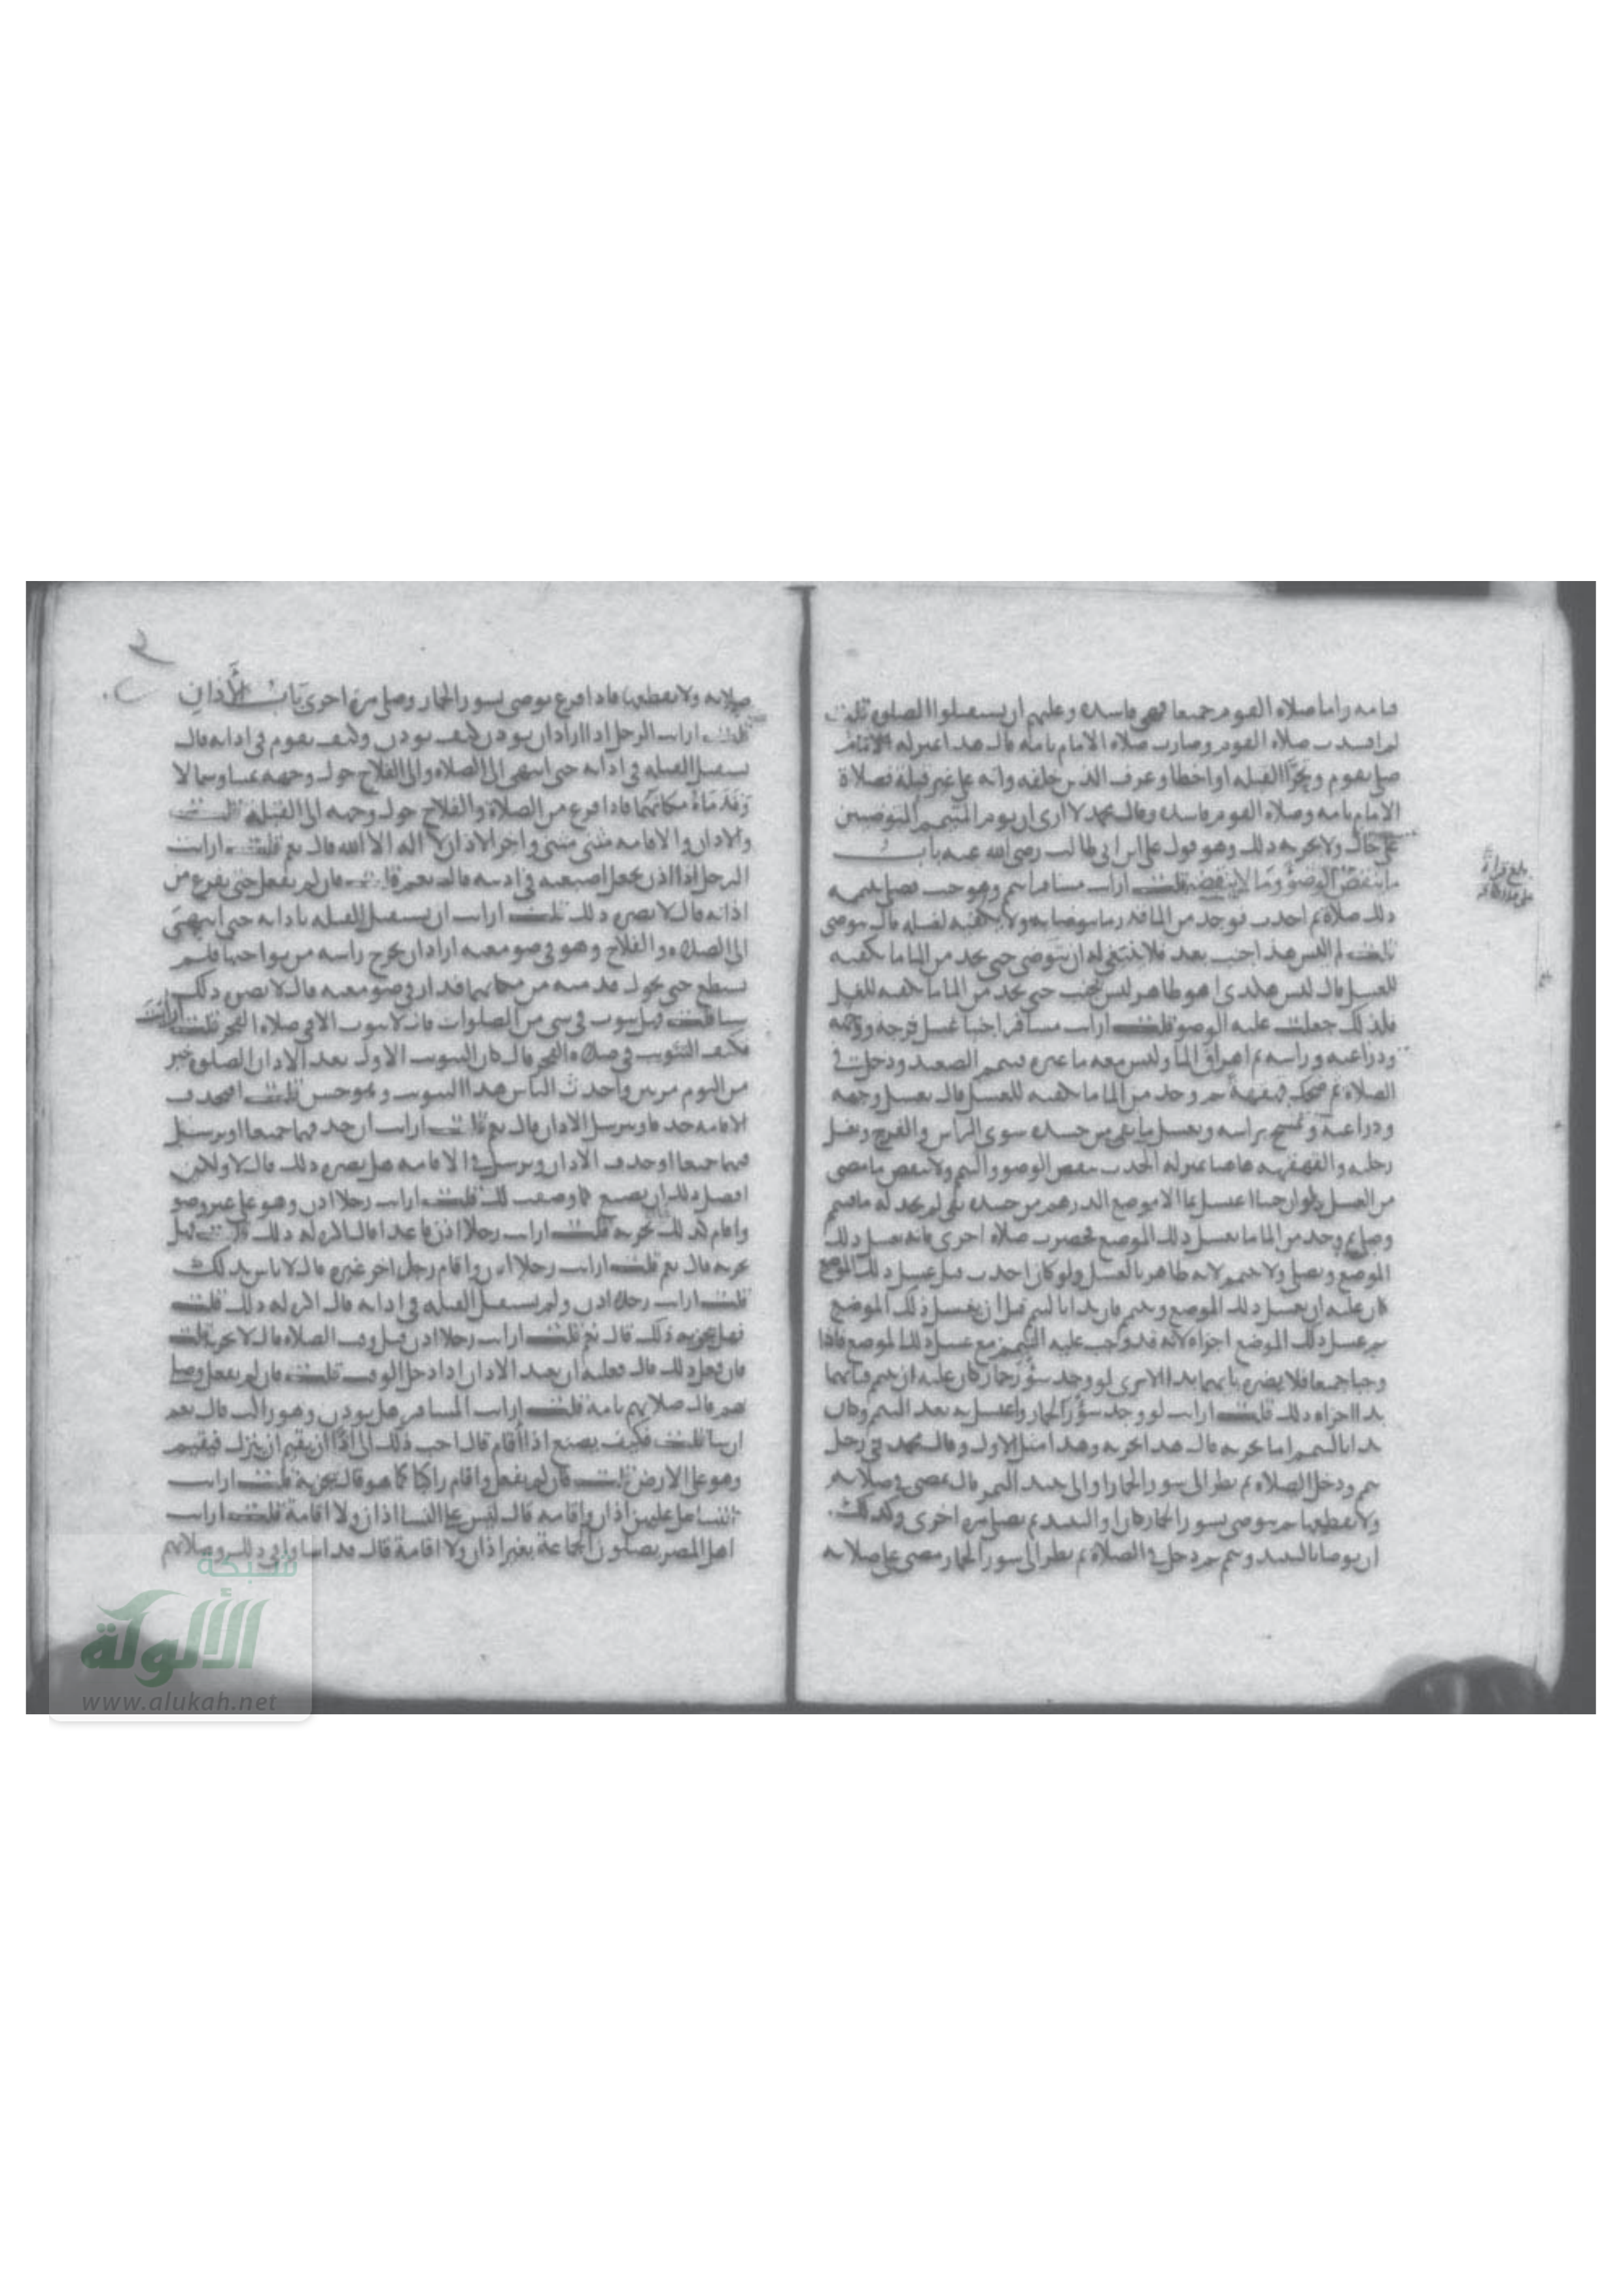 تامه واما صلاه القوم جميعا فهى فاسده وعليهم ان يستقبلوا الصلوة قلت
لم افسدت صلاه القوم وصارت صلاه الامام تامه قال هذا بمنزله الامام
صلى بقوم وتحرا القبله او اخطا وعرف الذين خلفه وانه على غير قبلة فصلاة
الامام تامه وصلاه القوم فاسده وقال محمد لا ارى ان يوم المتيمم المتوضيين
على حال ولا يجزيه ذلك وهو قول على ابن ابى طالب رضى الله عنه باب
ما ينقض الوضؤ وما لا ينقضه قلت ارايت مسافرا تيمم وهو جنب فصلى بتيممه
ذلك صلاة ثم احدث فوجد من الما قدر ما يتوضا به ولا يكفيه لغسله قال يتوضى
قلت لم اليس هذا جنب بعد فلا ينبغى له ان يتوضى حتى يجد من الما ما يكفيه
للغسل قال ليس هكذى هو طاهر ليس بجنب حتى يجد من الما ما يكفيه للغسل
فلذلك جعلت عليه الوضو قلت ارايت مسافرا جنبا غسل فرجه ووجهه
وذراعيه وراسه ثم اهراق الما وليس معه ما غيره فتيمم الصعيد ودخل فى
الصلاة ثم ضحك قهقهة ثم وجد من الما ما يكفيه للغسل قال يغسل وجهه
وذراعيه ويمسح براسه ويغسل ما بقى من جسده سوى الراس والفرج ويغسل
رجليه والقهقهه هاهنا بمنزله الحدث ينقض الوضو والتيمم ولا ينقض ما مضى
من الغسل ولو ان جنبا اغتسل بما الا موضع الدرهم من جسده بقى لم يجد له ما فتيمم
وصلى ثم وجد من الما ما يغسل ذلك الموضع فحضرت صلاه اخرى فانه يغسل ذلك
الموضع ويصلى ولا يتيمم لانه طاهر بالغسل ولو كان احدث قبل غسل ذلك الموضع
كان عليه ان يغسل ذلك الموضع ويتيمم فان بدا بالتيمم قبل ان يغسل ذلك الموضع
ثم غسل ذلك الموضع اجزاه لانه قد وجب عليه التيمم مع غسل ذلك الموضع فاذا
وجبا جميعا فلا يضره بايهما بدا الا ترى لو وجد سؤر حمار كان عليه ان يتيمم فبايهما
بدا اجزاه ذلك قلت ارايت لو وجد سؤر الحمار واغتسل به بعد التيمم وكان
بدا بالتيمم اما يجزيه قال هذا يجزيه وهذا مثل الاول وقال محمد فى رجل
تيمم ودخل الصلاه ثم نظر الى سور الحمار او الى نبيذ التمر قال يمضى فى صلاته
ولا يقطعها ثم يتوضى بسور الحمار كان او النبيذ ثم يصلى مره اخرى وكذلك
ان توضا بالنبيذ وتيمم ثم دخل فى الصلاة ثم نظر الى سور الحمار مضى على صلاته
بلغ قراة
صلاته ولا يقطعها فاذا فرغ توضى بسور الحمار وصلى مرة اخرى باب الأذان
قلت ارايت الرجل اذا اراد ان يوذن كيف يوذن وكيف يقوم فى اذانه قال
يستقبل القبله فى اذانه حتى انتهى الى الصلاه والى الفلاح حول وجهه يمينا وشمالا
وقدماه مكانهما فاذا فرغ من الصلاة والفلاح حول وجهه الى القبلة قلت
والاذان والاقامه مثنى مثنى واخر الاذان لا اله الا الله قال نعم قلت ارايت
الرجل اذا اذن يجعل اصبعيه فى اذنيه قال نعم قلت فان لم يفعل حتى يفرغ من
اذانه قال لا يضره ذلك قلت ارايت ان يستقبل القبله باذانه حتى انتهى
الى الصلاه والفلاح وهو فى صومعته اراد ان يخرج راسه من نواحيها فلم
يستطع حتى يحول قدميه من مكانهما فدار فى صومعته قال لا يضره ذلك
شيا قلت فهل يثوب فى شى من الصلوات قال لا يثوب الا فى صلاه الفجر قلت ارايت
فكيف التثويب فى صلاه الفجر قال كان التثويب الاول بعد الاذان الصلوه خير
من النوم مرتين واحدث الناس هذا التثويب وهو حسن قلت افيحدف
الاقامه حدفا ويترسل الاذان قال نعم قلت ارايت ان حدف فيهما جميعا او ترسل
فيهما جميعا او حدف الاذان وترسل فى الاقامه هل يضره ذلك قال لا ولكن
افضل ذلك ان يصنع كما وصفت لك قلت ارايت رجلا اذن وهو على غير وضو
واقام كذلك يجزيه قلت ارايت رجلا اذن قاعدا قال اكره له ذلك قلت فهل
يجزيه قال نعم قلت ارايت رجلا اذن واقام رجل اخر غيره قال لا باس بذلك
قلت ارايت رجلا اذن ولم يستقبل القبله فى اذانه قال اكره له ذلك قلت
فهل يجزيه ذلك قال نعم قلت ارايت رجلا اذن قبل وقت الصلاه قال لا يجزيه قلت
فان فعل ذلك قال فعليه ان يعيد الاذان اذا دخل الوقت قلت فان لم يفعل وصلى
بهم قال صلاتهم تامة قلت ارايت المسافر هل يوذن وهو راكب قال نعم
ان شا قلت فكيف يصنع اذا أقام قال احب ذلك الى اذا ان يقيم ان ينزل فيقيم
وهو على الارض قلت فان لم يفعل واقام راكبا كما هو قال يجزيه قلت ارايت
النسا هل عليهن اذان واقامه قال ليس على النسا اذان ولا اقامة قلت ارايت
اهل المصر يصلون الجماعة بغير اذان ولا اقامة قال قد اساوا فى ذلك وصلاتهم
شبكة
الألوكة
www.alukah.net